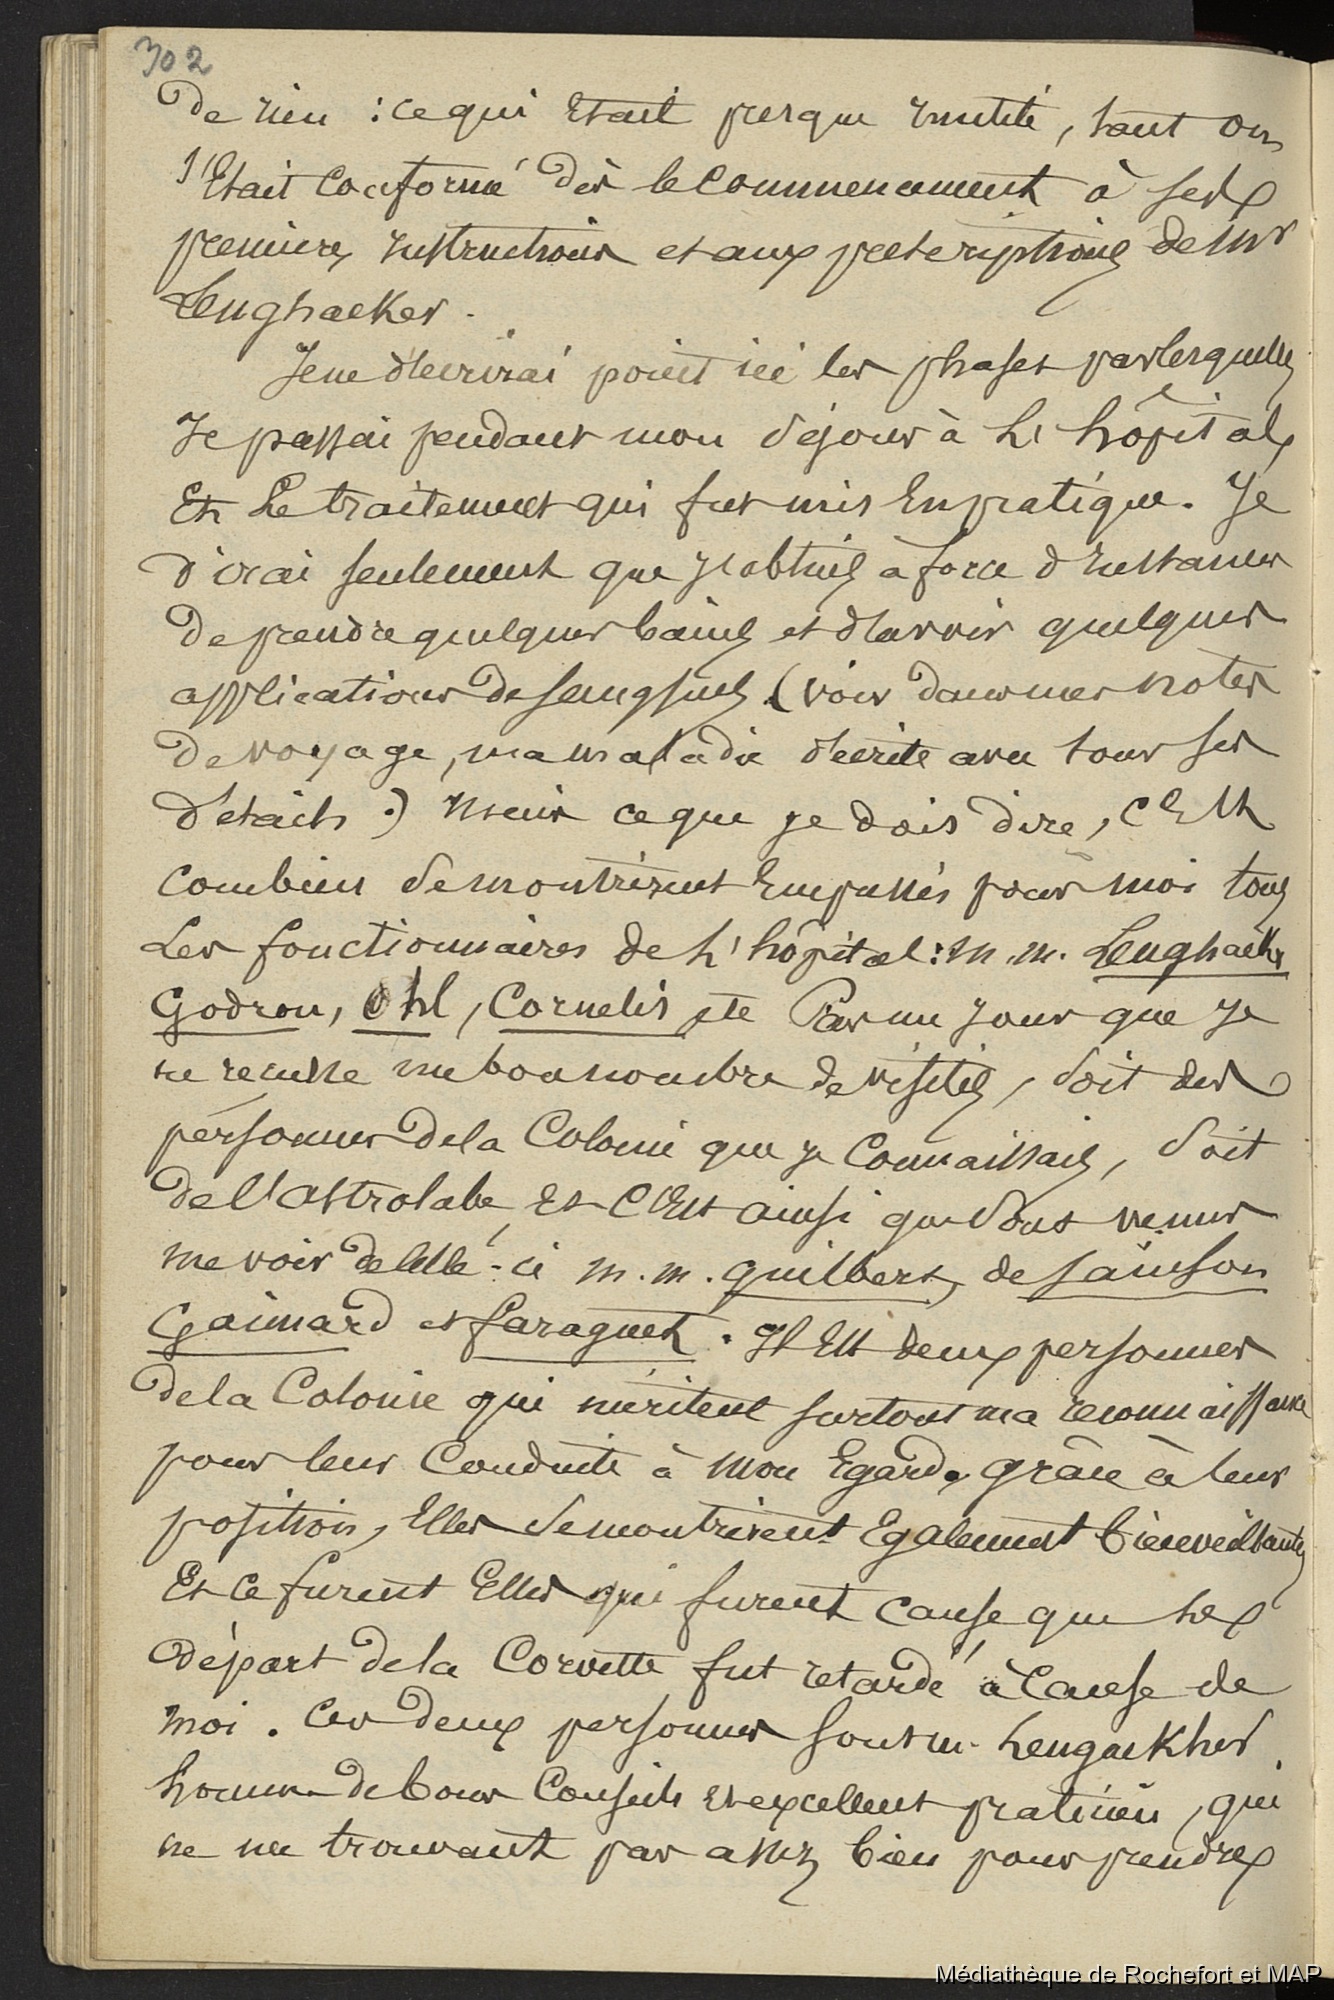 302
de rien : ce qui était presque inutile, tant on
s'était conformé dès le commencement à ses
premières instructions et aux prescriptions de Mr
Lenghaeker.
Je ne décrirai point ici les phases par lesquelles
je passai pendant mon séjour à l'hôpital
et le traitement qui fut mis en pratique. Je
dirai seulement que j'obtins à force d'instances
de prendre quelques bains et d'avoir quelques
applications de sangsues (voir dans mes notes
de voyage, ma maladie décrite avec tous ses
détails.) Mais ce que je dois dire, c'est
combien se montrèrent empressés pour moi tous
les fonctionnaires de l'hôpital : M.M. Lenghaeker
Godron, Ohl, Cornelis etc Pas un jour que je
ne reçusse un bon nombre de visites, soit des
personnes de la Colonie que je connaissais, soit
de l'astrolabe, et c'est ainsi que sont venus
me voir de celle-ci M.M. Guilbert, de Sainson
Gaimard et Faraguet. Il est deux personnes
de la Colonie qui méritent surtout ma reconnaissance
pour leur conduite à mon égard, grâce à leur
position, elles se montrèrent également bienveillantes
et ce furent elles qui furent cause que le
départ de la corvette fut retardé à cause de
moi. Ces deux personnes sont M. Lengaekher
homme de bons conseils et excellent praticien, qui
ne me trouvant pas assez bien pour prendre
Médiathèque de Rochefort et MAP